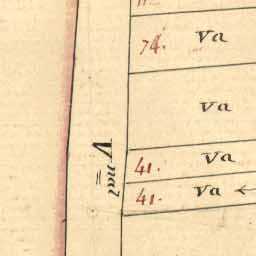 74. Va
Va
41. Va
41. Va
V nal